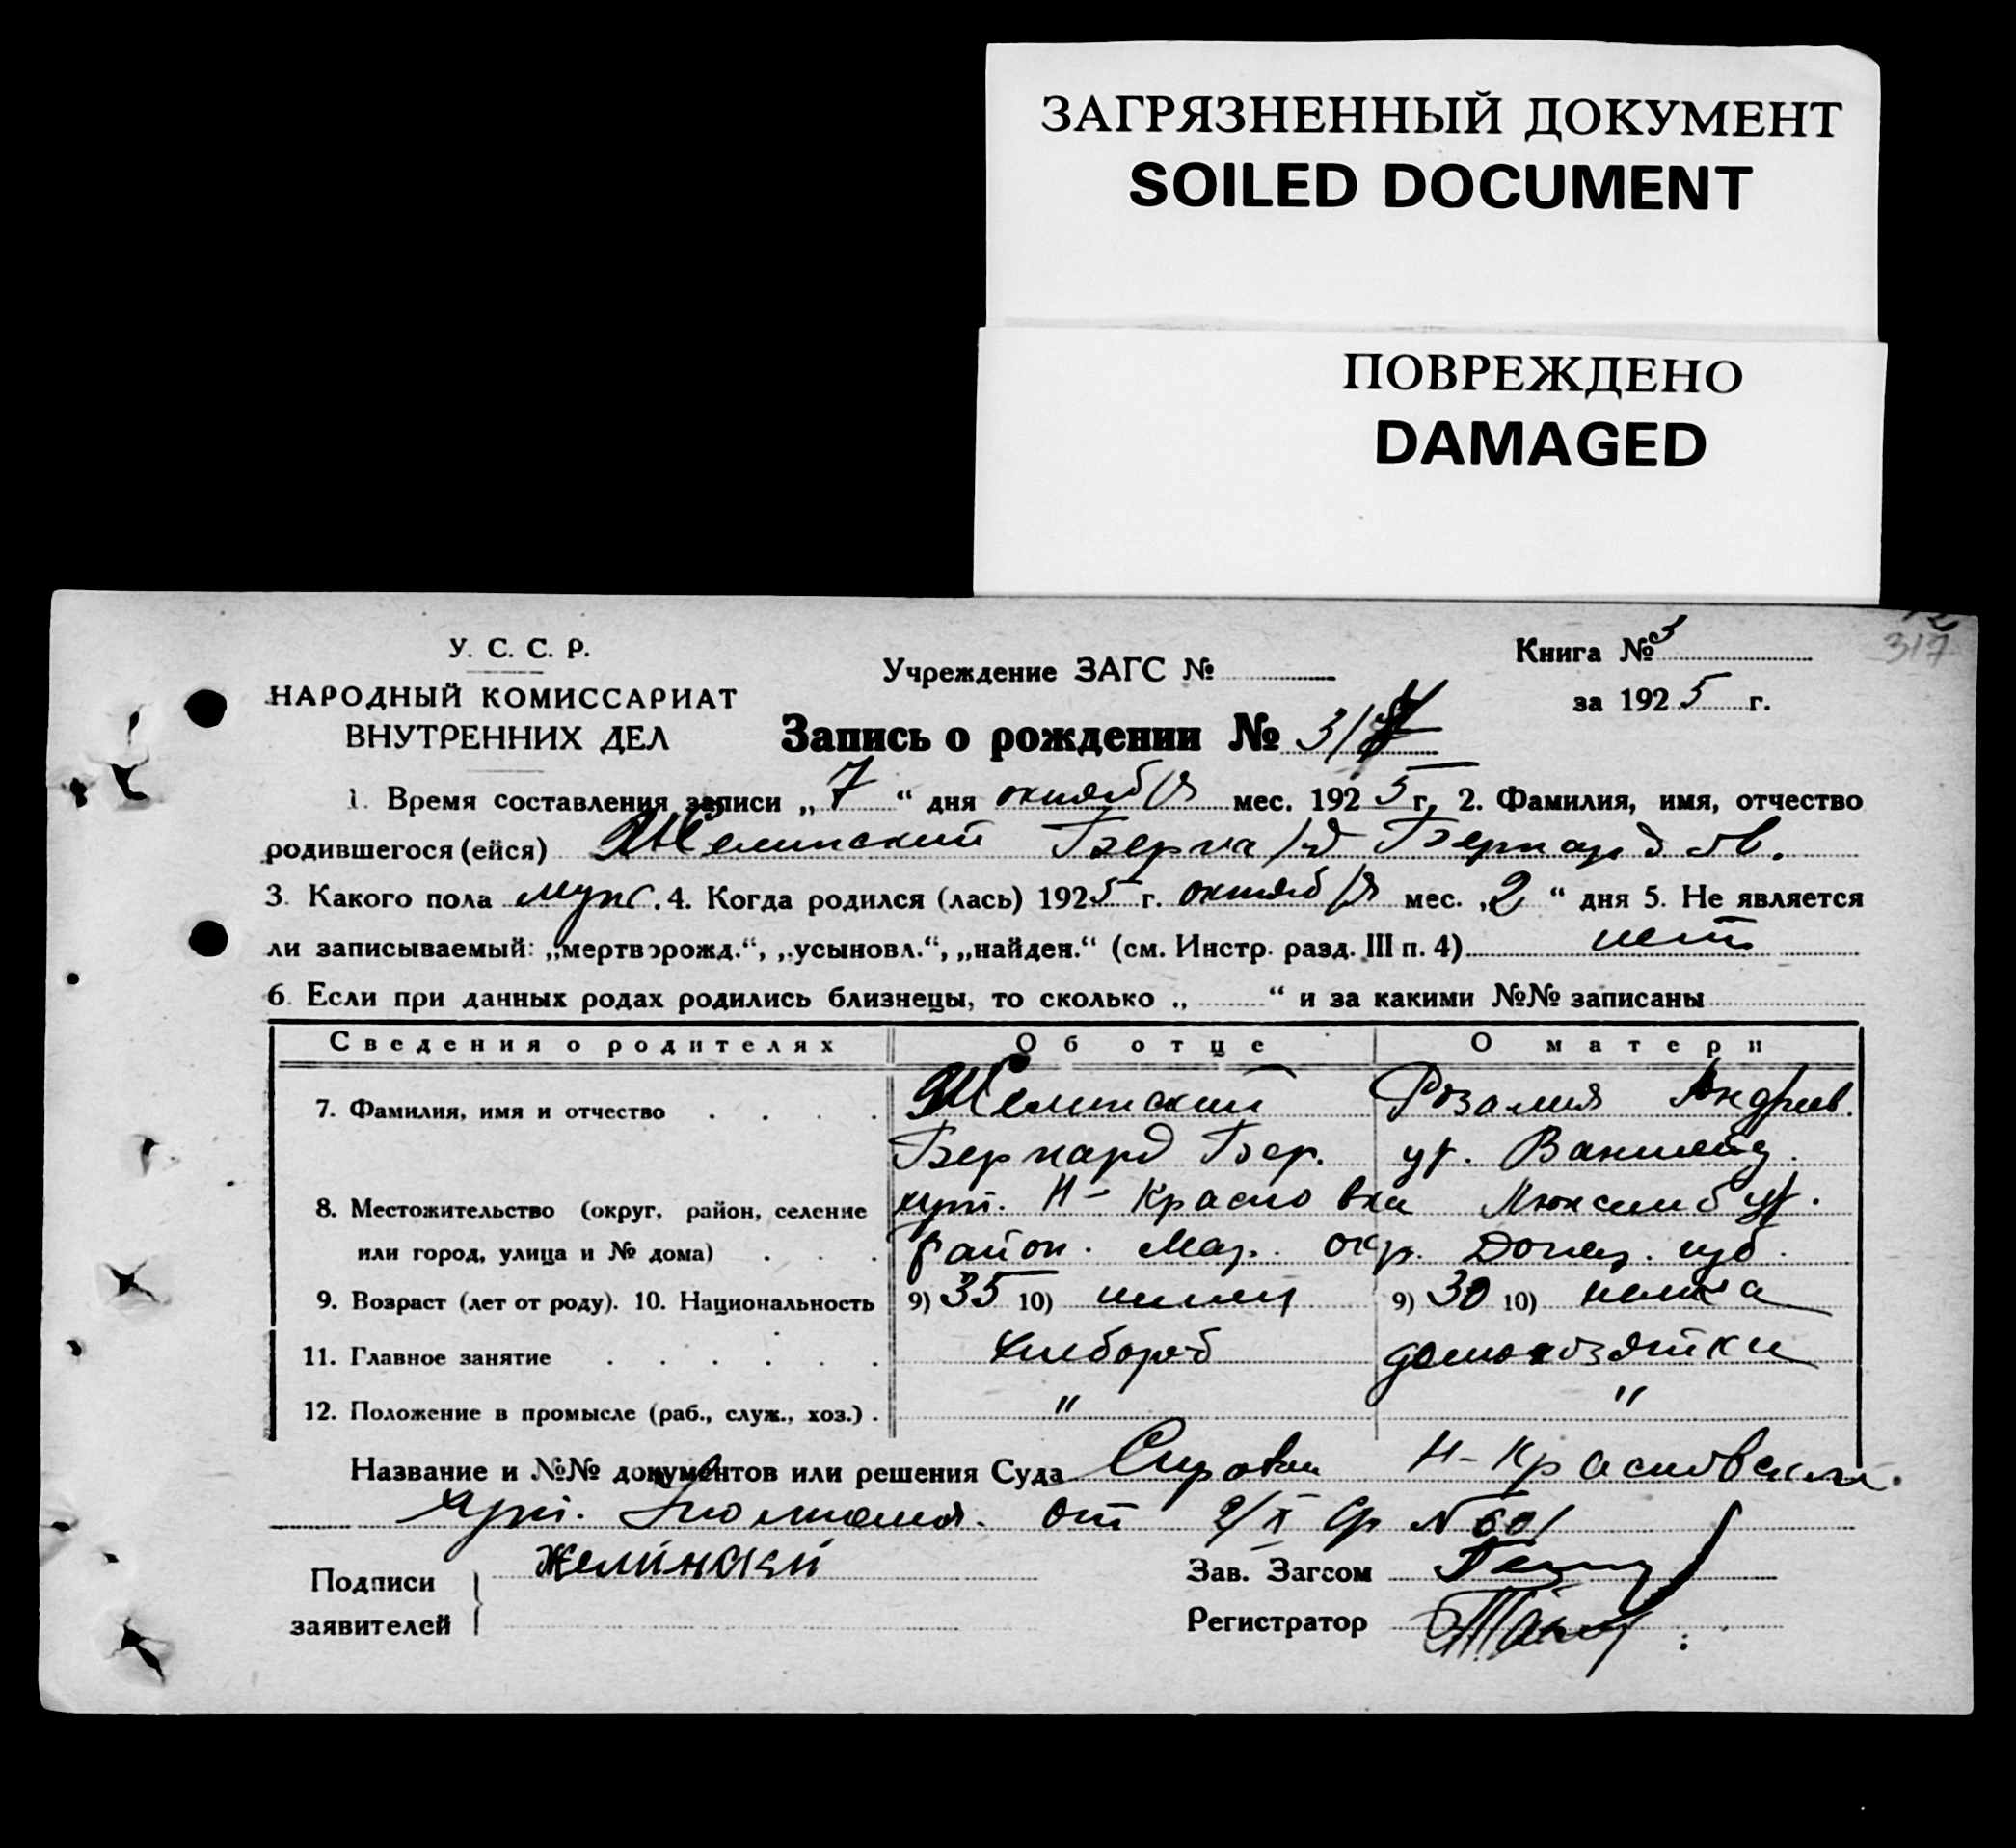 ЗАГРЯЗНЕННЫЙ ДОКУМЕНТ
SOILED DOCUMENT
ПОВРЕЖДЕНО
DAMAGED
317
У. С. С. Р.
НАРОДНЫЙ КОМИССАРИАТ
ВНУТРЕННИХ ДЕЛ
Учреждение ЗАГС №
Книга № 3
за 1925 г.
Запись о рождении № 317
1. Время составления записи „ 7 “ дня октября мес. 1925 г. 2. Фамилия, имя, отчество
родившегося (ейся) Желинский Бернард Бернардов.
3. Какого пола муж. 4. Когда родился (лась) 1925 г. октября мес. „ 2 “ дня 5. Не является
ли записываемый: „мертворожд.“, „усыновл.“, „найден.“ (см. Инстр. разд. III п. 4) нет
6. Если при данных родах родились близнецы, то сколько „ “ и за какими №№ записаны
Сведения о родителях Об отце О матери
7. Фамилия, имя и отчество . . . . Желинский Розалия Андреев.
Бернард Бер. ур.
8. Местожительство (округ, район, селение Н-Красновка Люксембур.
или город, улица и № дома) . . . район. Мар. окр. Донец. губ.
9. Возраст (лет от роду). 10. Национальность 9) 35 10) немец 9) 30 10) немка
11. Главное занятие . . . . . . хлебороб домохозяйки
12. Положение в промысле (раб., служ., хоз.) . " "
Название и №№ документов или решения Суда Справка Н-Красновской
от 2/X Ср № 601
Подписи заявителей Желинский
Зав. Загсом
Регистратор